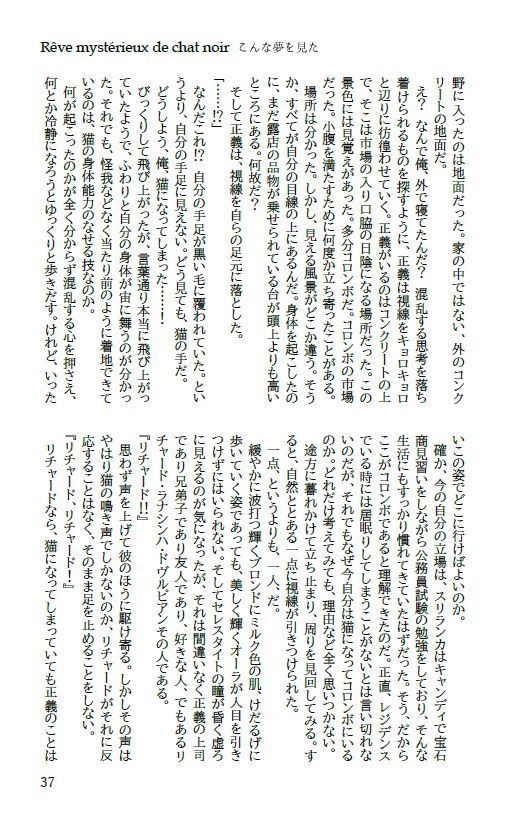 Rêve mystérieux de chat noir こんな夢を見た
野に入ったのは地面だった。家の中ではない、外のコンク
リートの地面だ。
え？　なんで俺、外で寝てたんだ？　混乱する思考を落ち
着けられるものを探すように、正義は視線をキョロキョロ
と辺りに彷徨わせていく。正義がいるのはコンクリートの上
で、そこは市場の入り口脇の日陰になる場所だった。この
景色には見覚えがあった。多分コロンボだ。コロンボの市場
だった。小腹を満たすために何度か立ち寄ったことがある。
場所は分かった。しかし、見える風景がどこか違う。そう
か、すべてが自分の目線の上にあるんだ。身体を起こしたの
に、まだ露店の品物が乗せられている台が頭上よりも高い
ところにある。何故だ？
そして正義は、視線を自らの足元に落とした。
「……!?」
なんだこれ!?　自分の手足が黒い毛に覆われていた。とい
うより、自分の手足に見えない。どう見ても、猫の手だ。
どうしよう、俺、猫になってしまった……！
びっくりして飛び上がったが、言葉通り本当に飛び上がっ
ていたようで、ふわりと自分の身体が宙に舞うのが分かっ
た。それでも、怪我などなく当たり前のように着地できて
いるのは、猫の身体能力のなせる技なのか。
何が起こったのかが全く分からず混乱する心を押さえ、
何とか冷静になろうとゆっくりと歩きだす。けれど、いった
いこの姿でどこに行けばよいのか。
確か、今の自分の立場は、スリランカはキャンディで宝石
商見習いをしながら公務員試験の勉強をしており、そんな
生活にもすっかり慣れてきていたはずだった。そう、だから
ここがコロンボであると理解できたのだ。正直、レジデンス
でいる時には居眠りしてしまうことがないとは言い切れな
いのだが、それでもなぜ今自分は猫になってコロンボにいる
のか。どれだけ考えてみても、理由など全く思いつかない。
途方に暮れかけて立ち止まり、周りを見回してみる。す
ると、自然ととある一点に視線が引きつけられた。
一点、というよりも、一人、だ。
緩やかに波打つ輝くブロンドにミルク色の肌、けだるげに
歩いていく姿であっても、美しく輝くオーラが人目を引き
つけずにはいられない。そしてセレスタイトの瞳が昏く虚ろ
に見えるのが気になったが、それは間違いなく正義の上司
であり兄弟子であり友人であり、好きな人、でもあるリ
チャード・ラナシンハ・ドヴルピアンその人である。
『リチャード!!』
思わず声を上げて彼のほうに駆け寄る。しかしその声は
やはり猫の鳴き声でしかないのか、リチャードがそれに反
応することはなく、そのまま足を止めることをしない。
『リチャード、リチャード！』
リチャードなら、猫になってしまっていても正義のことは
37